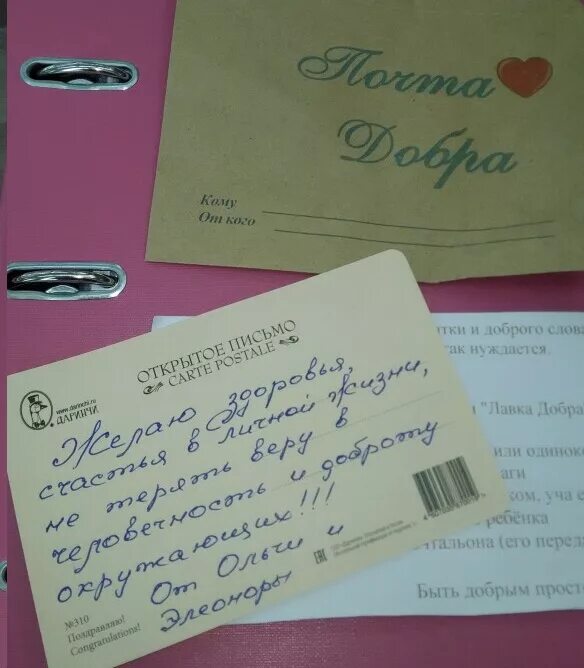 Почта
Добра
Кому
От кого
ОТКРЫТОЕ ПИСЬМО
CARTE POSTALE
www.darinchi.ru
ДАРИНЧИ
Желаю здоровья,
счастья в личной жизни,
не терять веру в
человечность и доброту
окружающих!!!
От Ольги и
Элеоноры
№310
Поздравляю!
Congratulations!
тки и доброго слова
так нуждается.
и "Лавка Добра
или одиноко
аги
ком, уча с
ребёнка
тальона (его перед
Быть добрым прост